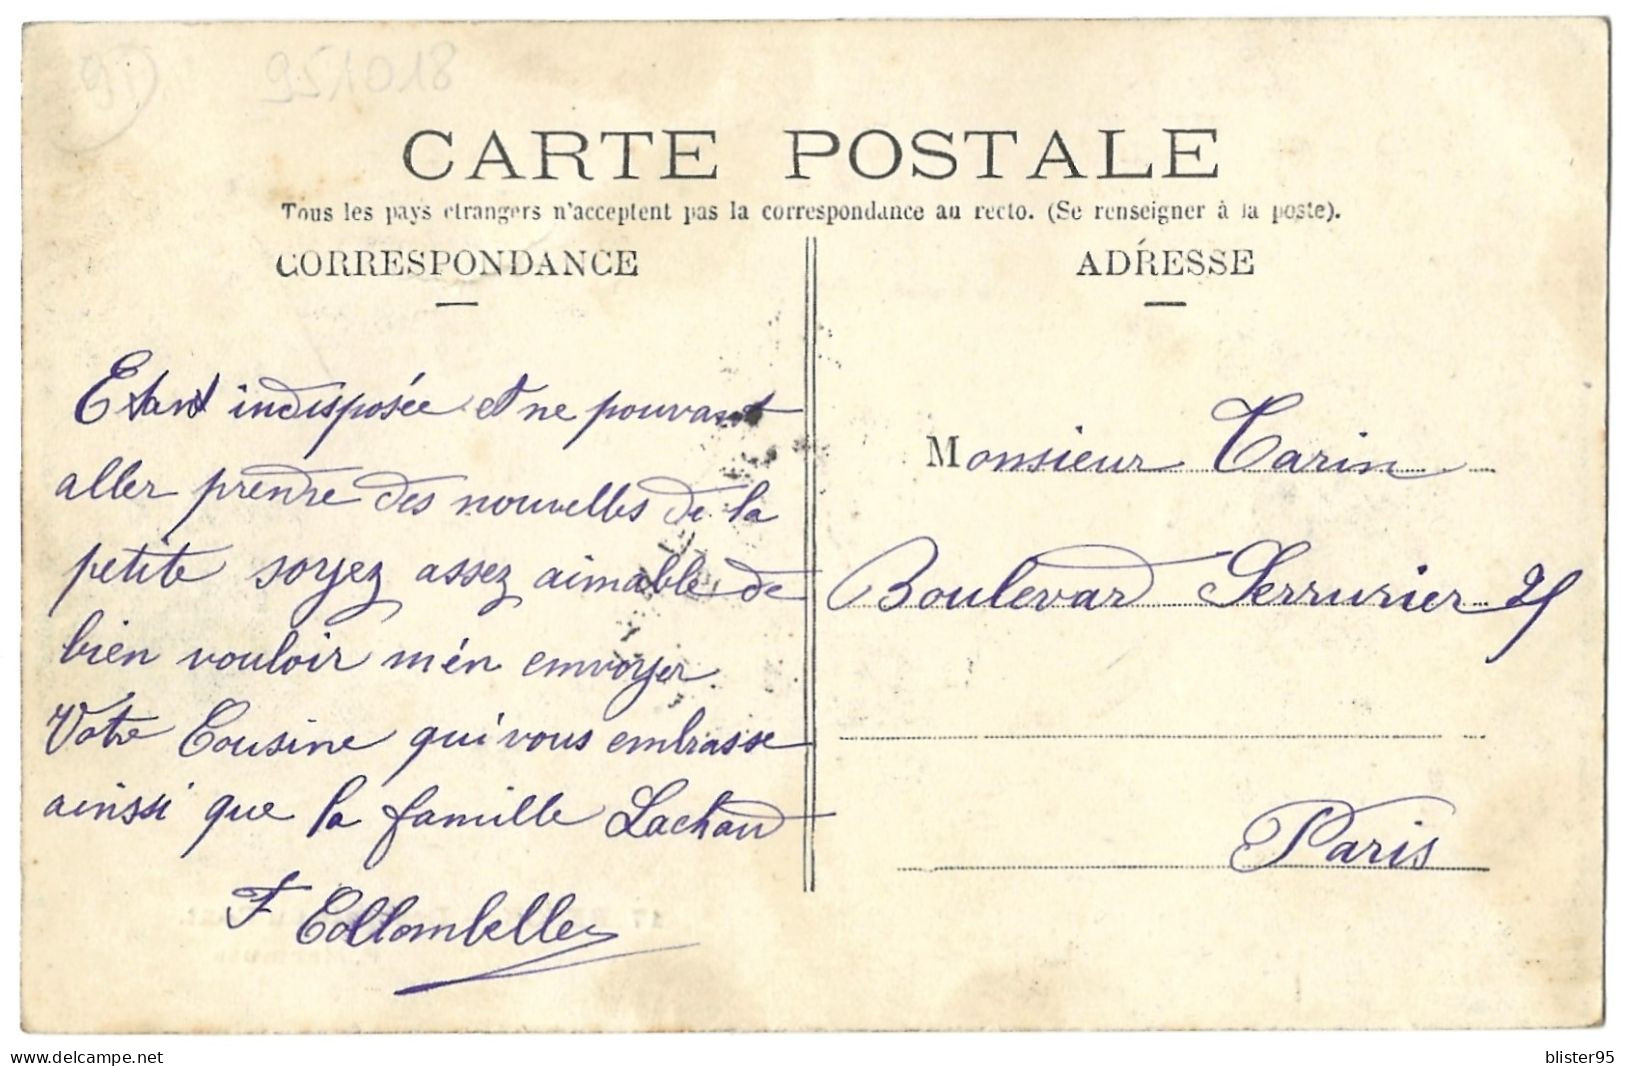 951018
CARTE POSTALE
Tous les pays etrangers n'acceptent pas la correspondance au recto. (Se renseigner à la poste).
CORRESPONDANCE
Etant indisposée et ne pouvant
aller prendre des nouvelles de la
petite soyez assez aimable de
bien vouloir m'én envoyer.
Votre Cousine qui vous embrasse
ainssi que la famille Lachaud
F Collombelle
ADRESSE
Monsieur Tarin
Boulevard Serrurier 25
Paris
delcampe.net
blister95